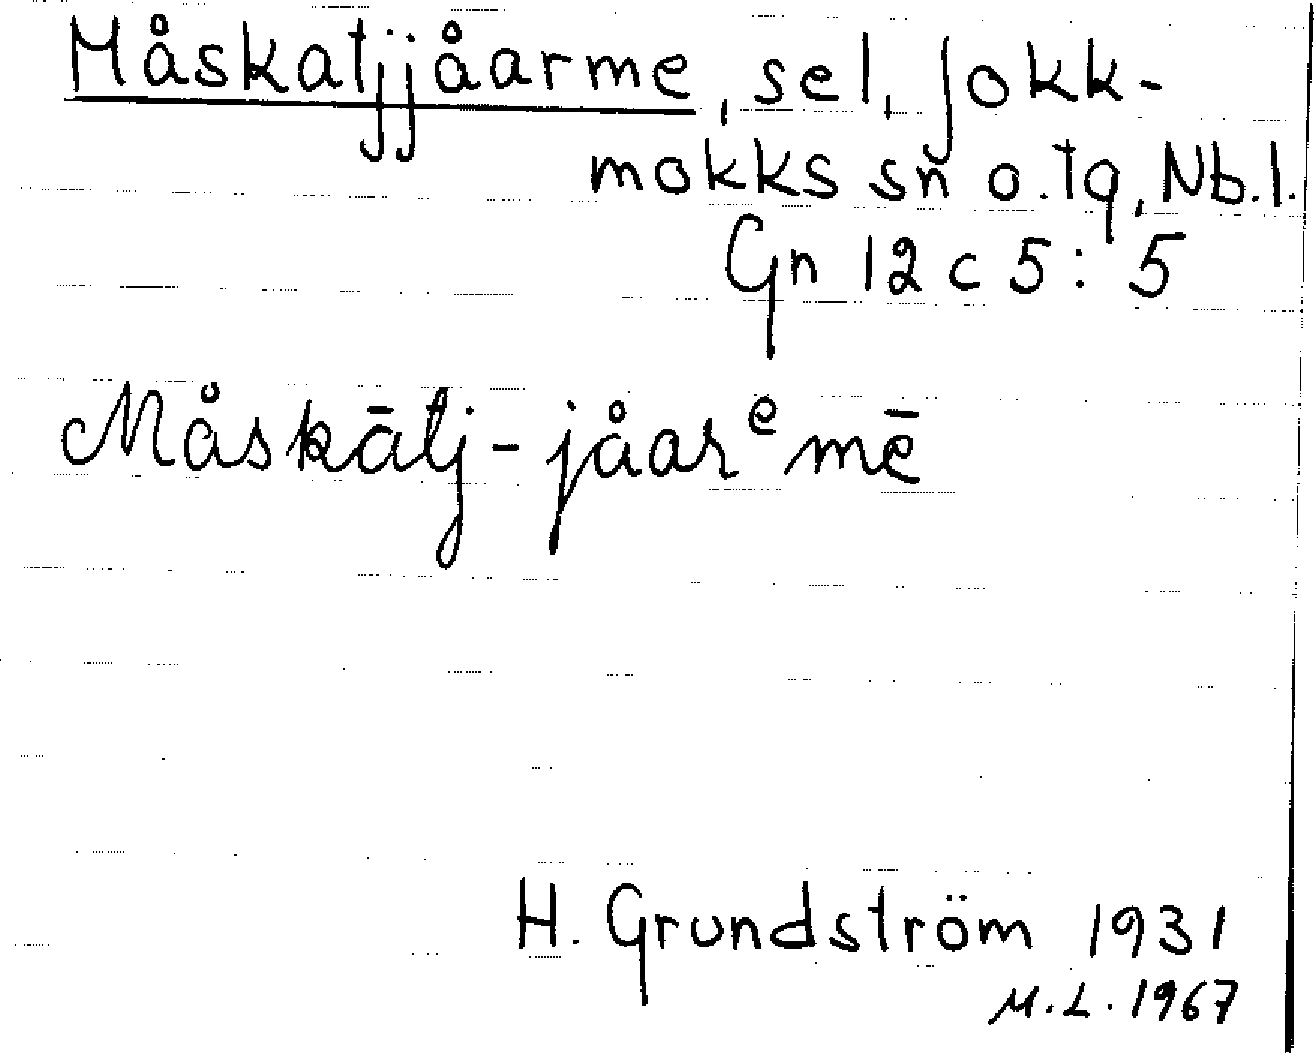 Måskatjjåarme, sel, Jokk-
mokks sn o. tg, Nb. l.
Gn 12 c 5: 5
Måskātj-jåarᵉmē
H. Grundström 1931
M. L. 1967